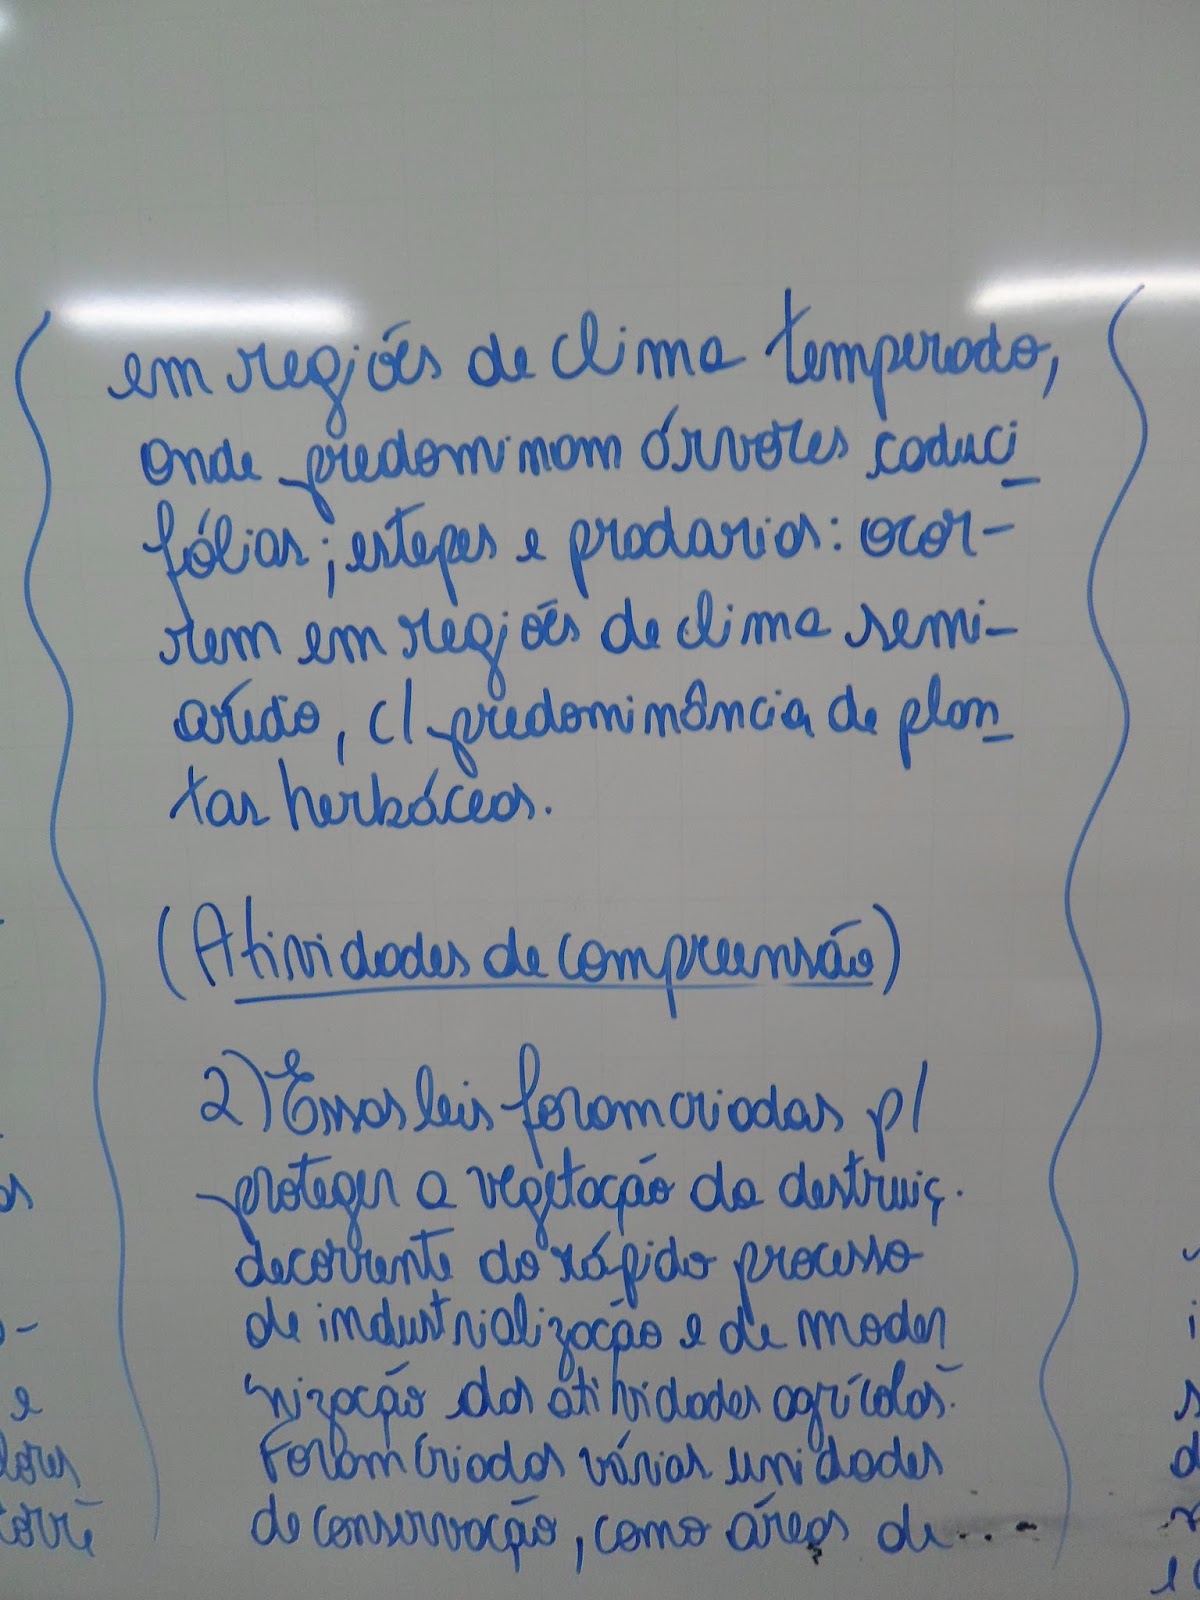 em regiões de clima temperado,
onde predominam árvores caduci_
fólias; estepes e pradarias: ocor-
rem em regiões de clima semi-
árido, c/ predominância de plan_
tas herbáceas.
(Atividades de compreensão)
2) Essas leis foram criadas p/
proteger a vegetação da destruiç.
decorrente do rápido processo
de industrialização e de moder
nização das atividades agrícolas.
Foram criadas várias unidades
de conservação, como áreas de...